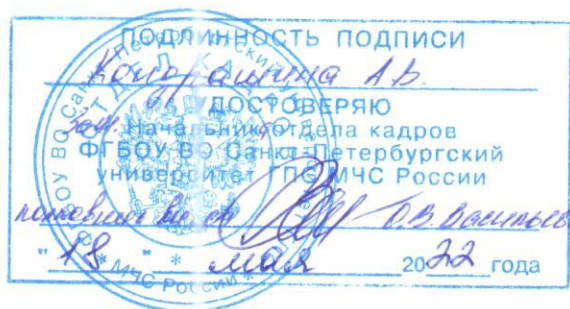 ПОДЛИННОСТЬ ПОДПИСИ
Кондрашина А.В.
УДОСТОВЕРЯЮ
Зам. Начальник отдела кадров
ФГБОУ ВО Санкт-Петербургский
университет ГПС МЧС России
О.В. Васильев
"18" мая 2022 года
ОТДЕЛ КАДРОВ
* МЧС РОССИИ *